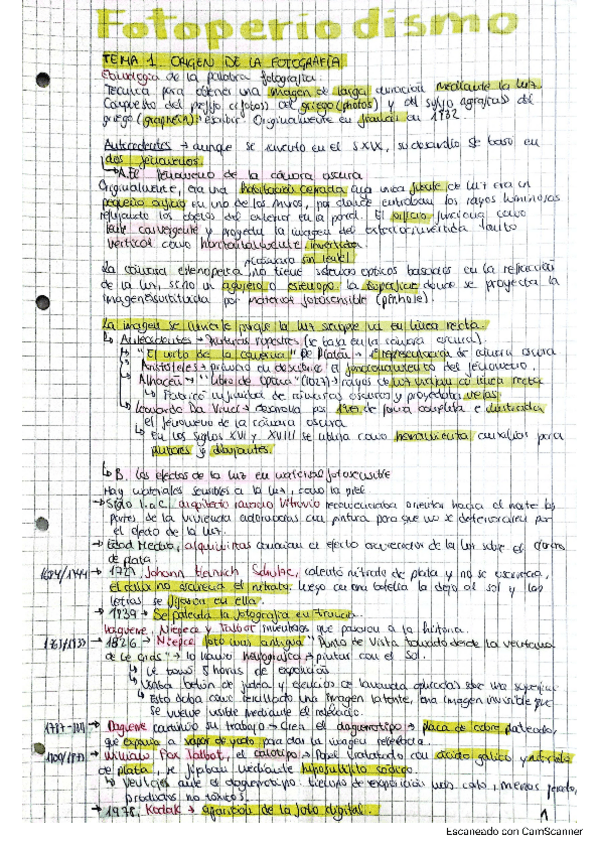 Fotoperiodismo
TEMA 1. ORIGEN DE LA FOTOGRAFÍA
Etimología de la palabra fotografía:
Técnica para obtener una imagen de larga duración mediante la luz.
Compuesto del prefijo (fotos) del griego (photos) y del sufijo del
griego (graphein): escribir. Originalmente en francés en 1832.
Antecedentes → aunque se inventó en el S XIX, su desarrollo se basó en
dos fenómenos.
A. El fenómeno de la cámara oscura
Originalmente, era una habitación cerrada cuya única fuente de luz era un
pequeño orificio en uno de los muros, por donde entraban los rayos luminosos
reflejando los objetos del exterior en la pared. El orificio funciona como
lente convergente y proyecta la imagen del exterior invertida tanto
vertical como horizontalmente, invertida.
(cámara sin lente)
La cámara estenopeica, no tiene sistemas ópticos basados en la refracción
de la luz, sino un agujero o estenopo. La superficie donde se proyecta la
imagen es sustituida por material fotosensible (pinhole).
La imagen se invierte porque la luz siempre va en línea recta.
Antecedentes → Pinturas rupestres (se basa en la cámara oscura).
"El mito de la caverna" De Platón → Representación de cámara oscura
Aristóteles → primero en describir el funcionamiento del fenómeno.
Alhacén → "Libro de Óptica" (1021) → rayos de luz viajan en línea recta
Fabricó infinidad de cámaras oscuras y proyectaba velas.
Leonardo Da Vinci → desarrolla por de forma completa e ilustrada
el fenómeno de la cámara oscura
En los Siglos XVI y XVIII se utiliza como herramienta auxiliar para
pintores y dibujantes.
B. Los efectos de la luz en material fotosensible
Hay materiales sensibles a la luz, como la piel
→ Siglo I. a.C. arquitecto romano Vitruvio recomendaba orientar hacia el norte las
partes de la vivienda adornadas con pintura para que no se deteriorasen por
el efecto de la luz.
→ Edad Media, alquimistas conocían el efecto oscurecedor de la luz sobre el cloruro
de plata.
1684/1744 → 1727 Johann Heinrich Schulze, calentó nitrato de plata y no se oscurecía,
el calor no oscurecía el nitrato. Luego con una botella la dejó al sol y las
letras se fijaron en ella.
→ 1839 → Se patenta la fotografía en Francia.
Daguerre, Niepce y Talbot inventores que pasaron a la historia.
→ 1826 → Niepce foto más antigua "Punto de Vista tomado desde la ventana
de Le Gras" → lo llamó heliografía → pintar con el sol.
Le tomó 8 horas de exposición
Usaba betún de Judea y esencia de lavanda aplicadas sobre una superficie
Esto daba como resultado una imagen latente, una imagen invisible que
se vuelve visible mediante el revelado.
→ Daguerre continuó su trabajo → crea el daguerrotipo → placa de cobre plateado,
que expuso a vapor de yodo para dar la imagen
→ William Fox Talbot, el calotipo → papel tratado con ácido gálico y nitrato
de plata, se fijaban mediante hiposulfito sódico.
Ventajas ante el daguerrotipo: tiempo de exposición más corto, menos pesado,
productos no tóxicos.
→ 1975, Kodak → aparición de la foto digital.
1
Escaneado con CamScanner